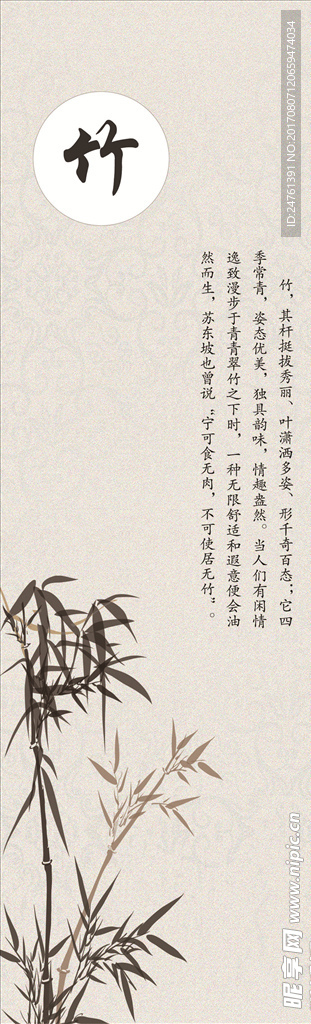 竹
竹，其杆挺拔秀丽、叶潇洒多姿、形千奇百态；它四
季常青，姿态优美，独具韵味，情趣盎然。当人们有闲情
逸致漫步于青青翠竹之下时，一种无限舒适和遐意便会油
然而生，苏东坡也曾说“宁可食无肉，不可使居无竹”。
ID:24761391 NO:20170807120659474034
昵享网 www.nipic.cn